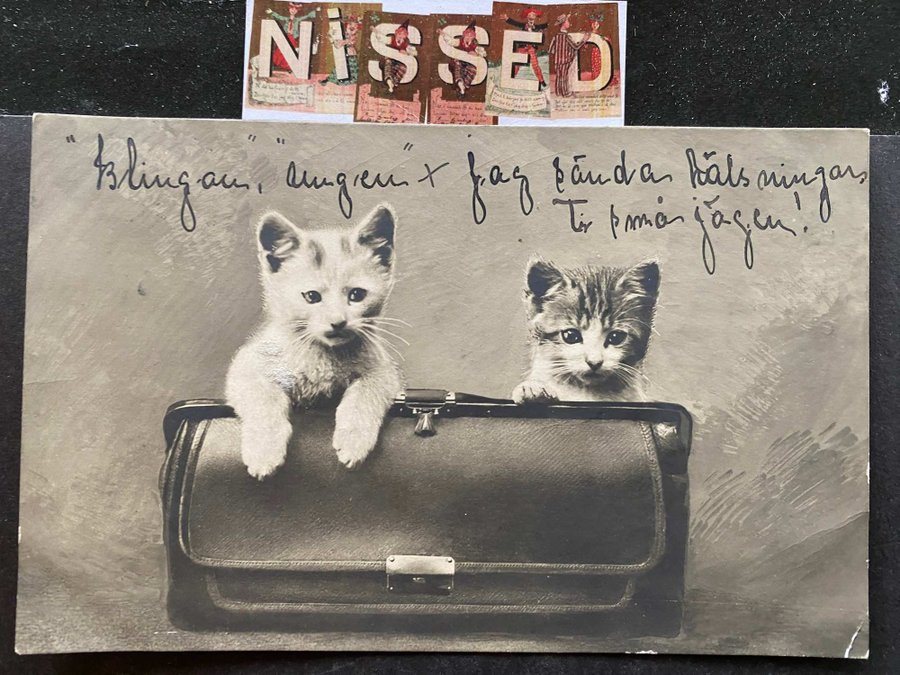 NiSSED
"Klingan", "ungen" + jag sända hälsningar
små jägen!